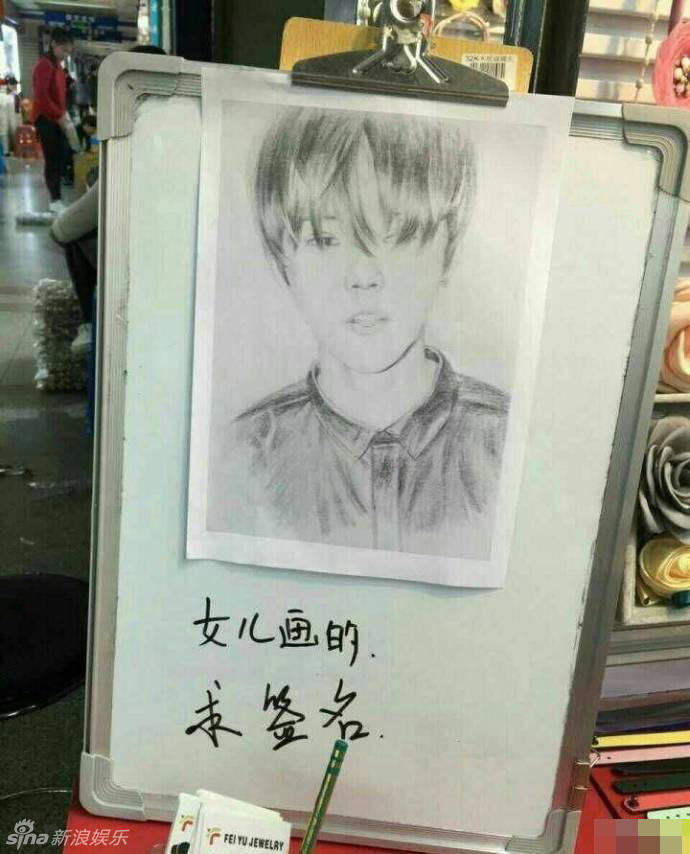 女儿画的.
求签名.
FEI YU JEWELRY
sina新浪娱乐